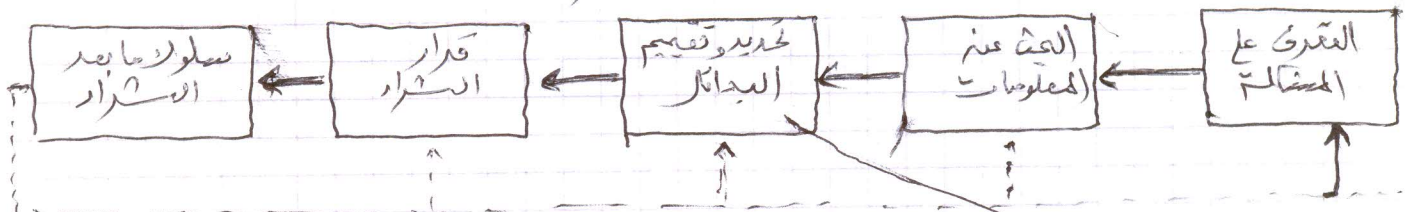 التعرف على
المشكلة
البحث عن
المعلومات
تحديد وتقييم
البدائل
قرار
الشراء
سلوك ما بعد
الشراء